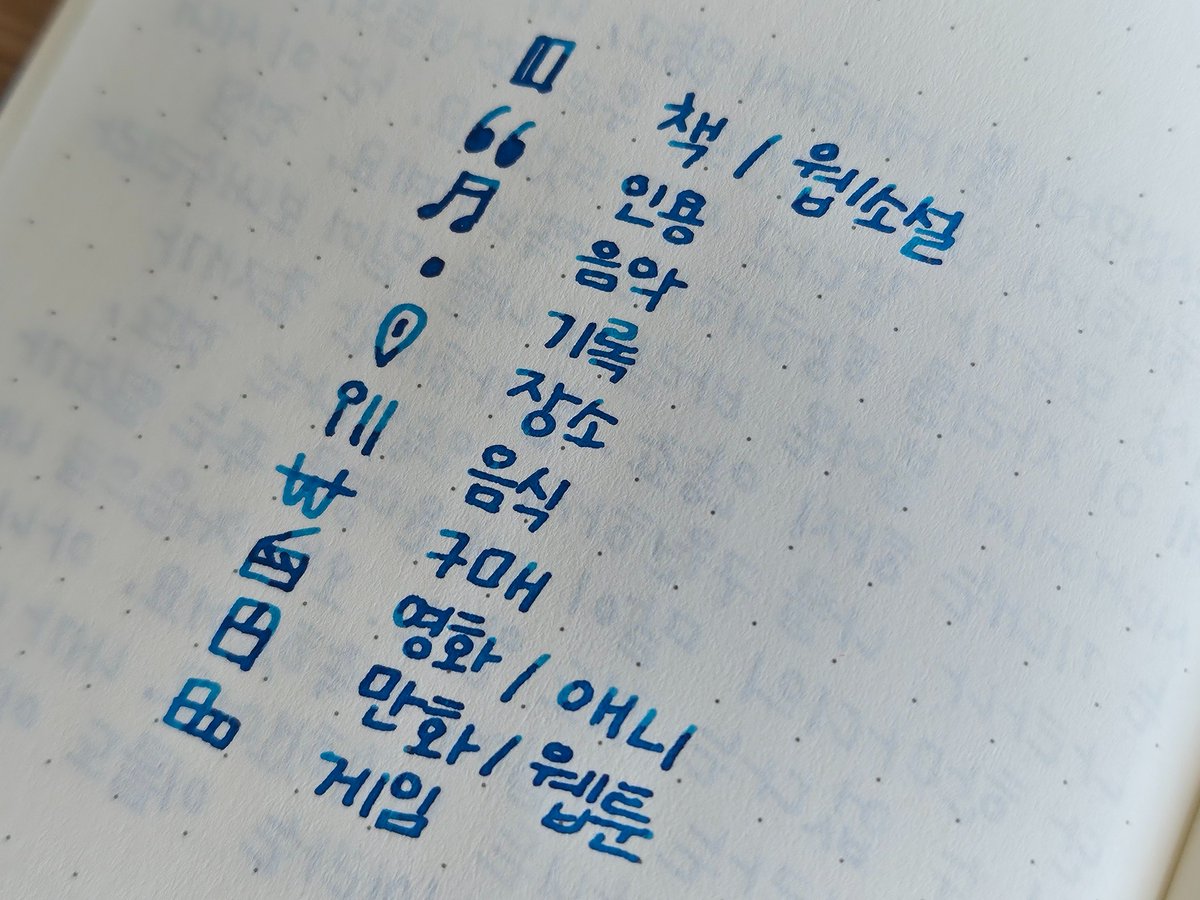 책 / 웹소설
❝ 인용
♫ 음악
• 기록
장소
음식
구매
영화 / 애니
만화 / 웹툰
게임